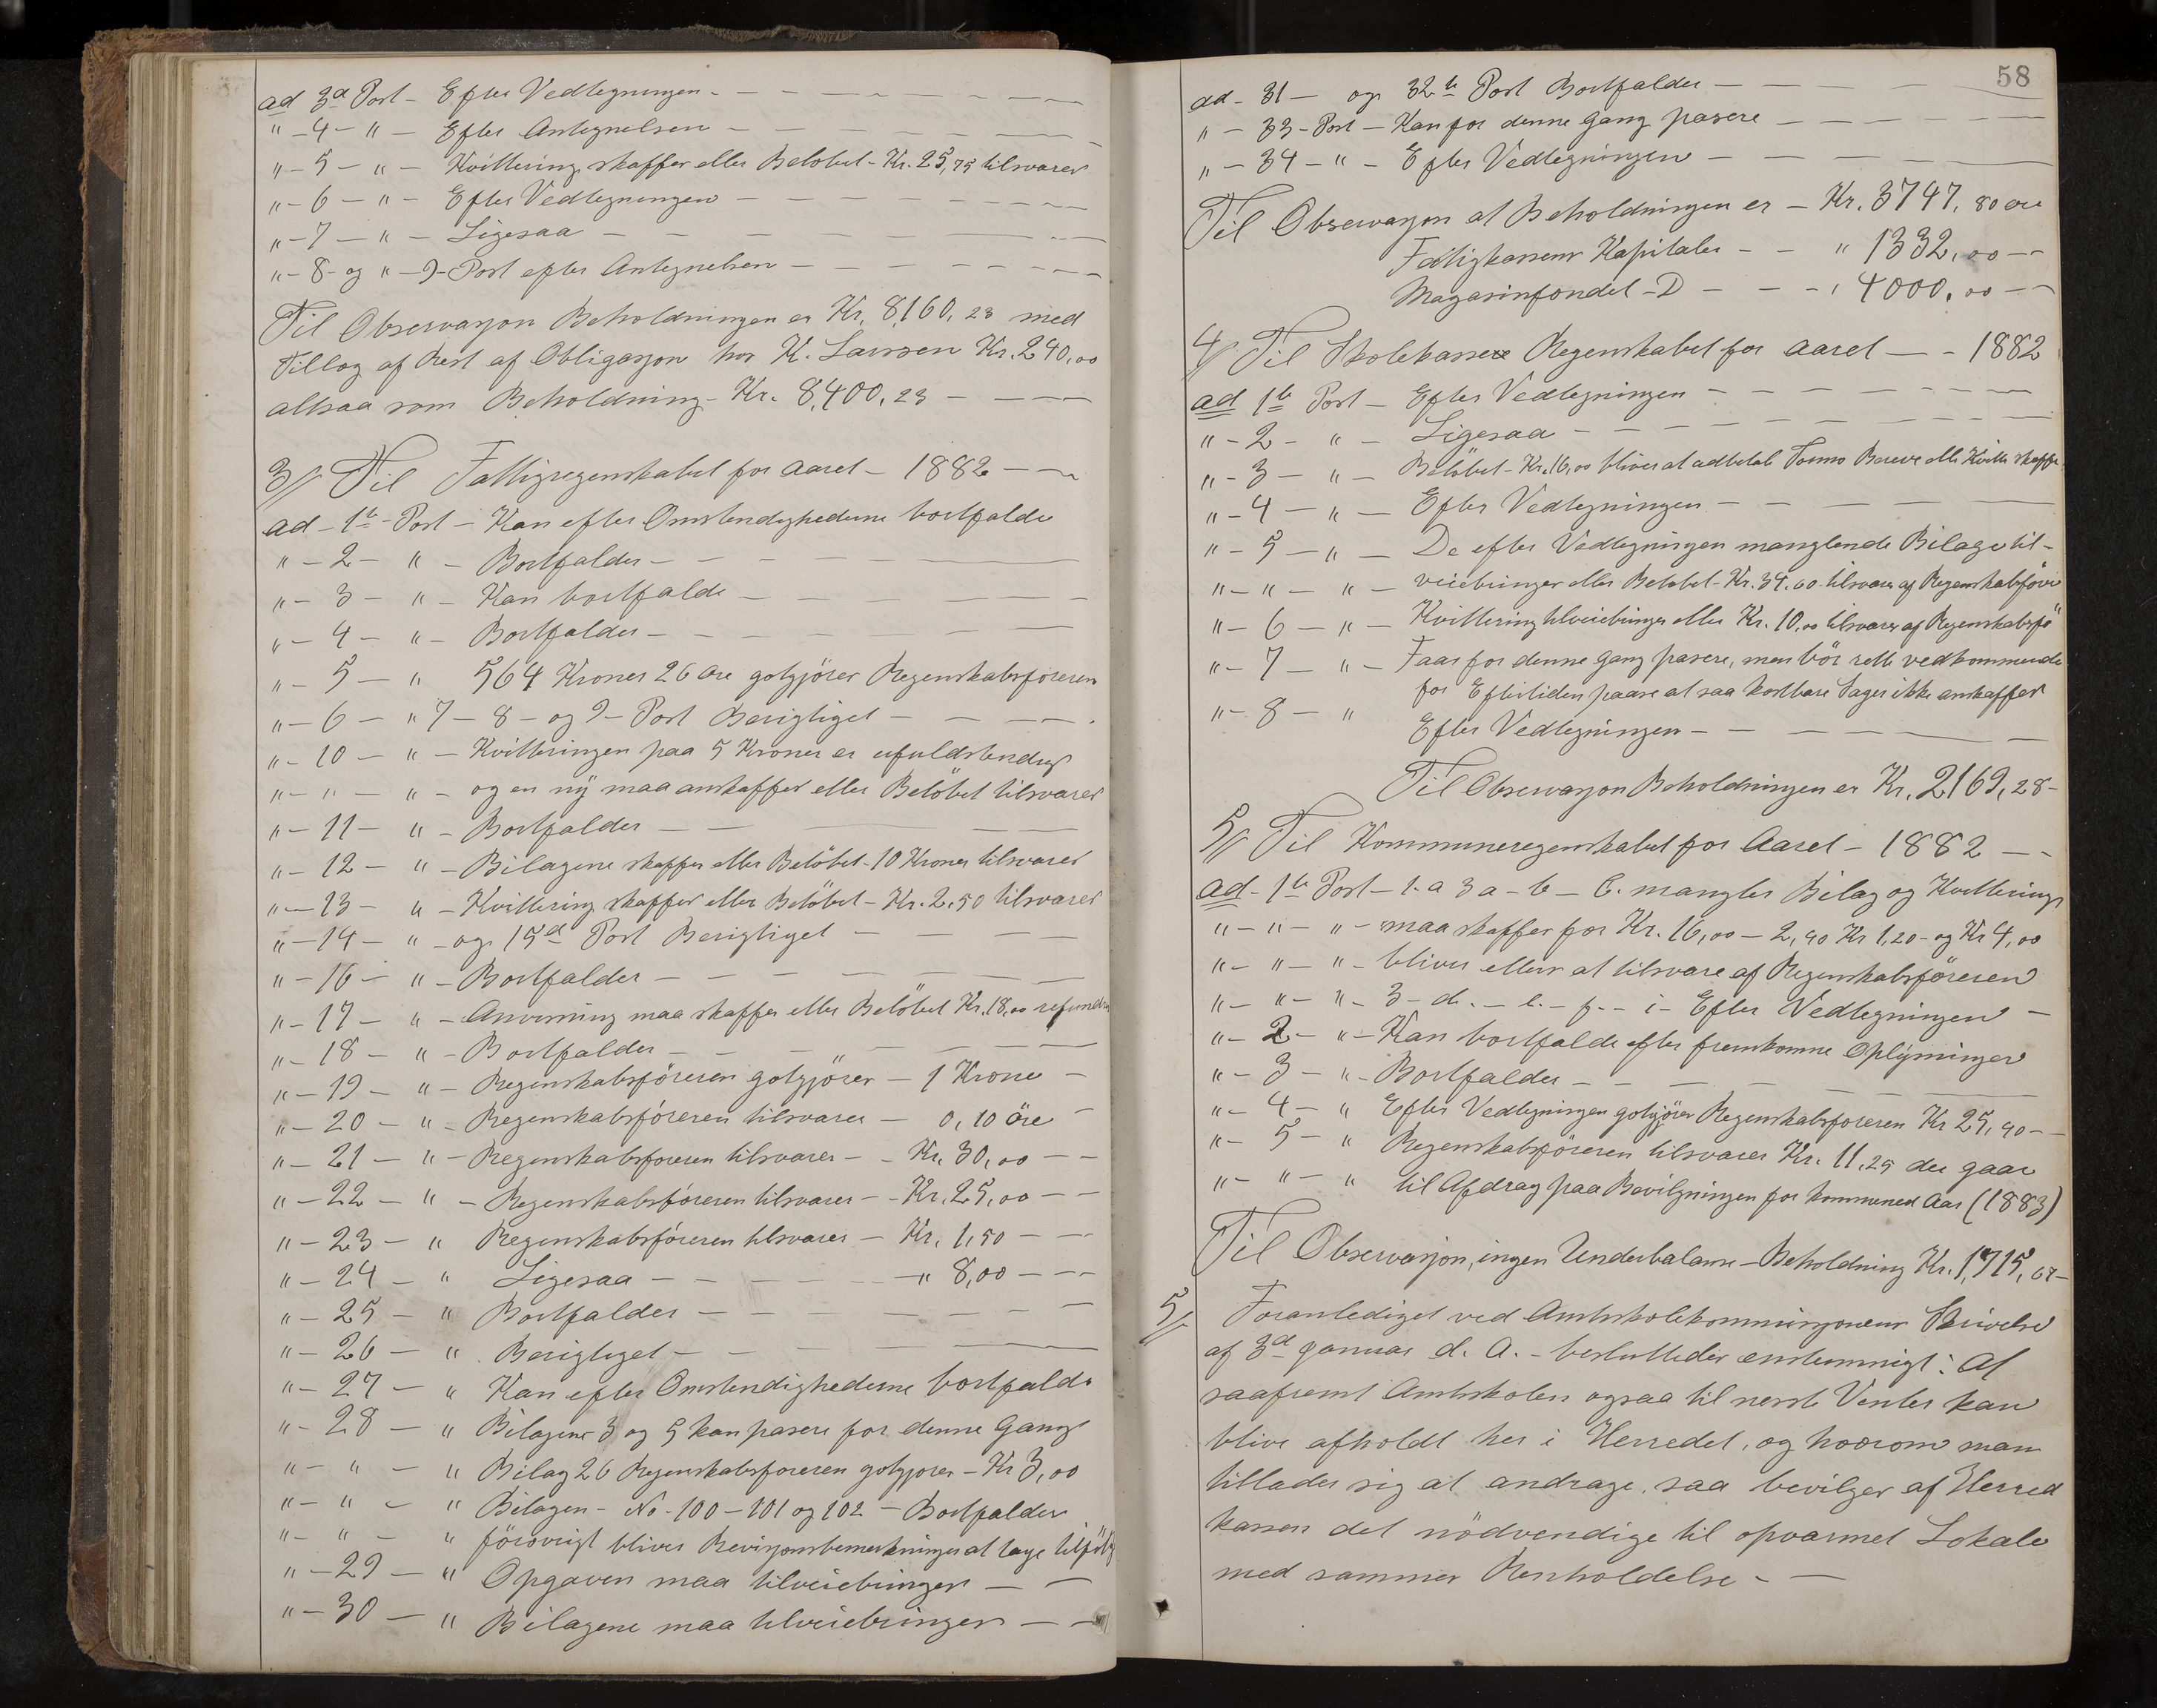 ad 3d Post - Efter Vedtegningen - - - -
" - 4 - " - Efter Antegnelsen - - - -
" - 5 - " - Kvittering skaffes eller Beløbet - Kr. 25,75 tilsvares
" - 6 - " - Efter Vedtegningen - - - -
" - 7 - " - Ligesaa - - - -
" - 8 - og " - 9 - Post efter Antegnelsen - - - -
Til Observasjon Beholdningen er Kr. 8,160,23 med
Tillæg af Rest af Obligasjon hos K. Larssen Kr. 240,00
altsaa som Beholdning - Kr. 8,400,23 - - -
3// Til Fattigregnskabet for Aaret - 1882 - -
ad - 1te Post - Kan efter Omstendighederne bortfalde
" - 2 - " - Bortfalder - - -
" - 3 - " - Kan bortfalde - - -
" - 4 - " - Bortfalder - - -
" - 5 - " 564 Kroner 26 Øre godgjører Regnskabsføreren
" - 6 - " 7 - 8 - og 9 - Post Berigtiget - - -
" - 10 - " - Kvitteringen paa 5 Kroner er ufuldstendig
" - " - " - og en ny maa anskaffes eller Beløbet tilsvares
" - 11 - " - Bortfalder - - -
" - 12 - " - Bilagene skaffes eller Beløbet - 10 Kroner tilsvares
" - 13 - " - Kvittering skaffes eller Beløbet - Kr. 2,50 tilsvares
" - 14 - " - og 15d Post Berigtiget - - -
" - 16 - " - Bortfalder - - -
" - 17 - " - Anvisning maa skaffes eller Beløbet Kr. 18,00 refunderes
" - 18 - " - Bortfalder - - -
" - 19 - " - Regnskabsføreren godgjøres - 1 Krone -
" - 20 - " - Regnskabsføreren tilsvarer - 0,10 Öre -
" - 21 - " - Regnskabsføreren tilsvarer - - Kr. 30,00 - -
" - 22 - " - Regnskabsføreren tilsvarer - - Kr. 25,00 - -
" - 23 - " Regnskabsføreren tilsvarer - Kr. 1,50 - -
" - 24 - " Ligesaa - - - " 8,00 - - -
" - 25 - " Bortfalder - - -
" - 26 - " Berigtiget - - -
" - 27 - " Kan efter Omstendighederne bortfalde
" - 28 - " Bilagene 3 og 5 kan pasere for denne Gang
" - " - " Bilag 26 Regnskabsføreren godgjøres - Kr 3,00
" - " - " Bilagen - No - 100 - 101 og 102 - Bortfalder
" - " - " förøvrigt bliver Revisjonsbemerkninger at tage tilfølge
" - 29 - " Opgaven maa tilveiebringes - -
" - 30 - " Bilagene maa tilveiebringes - -
58
ad - 31 - og 32te Post Bortfalder - - -
" - 33 - Post - Kan for denne Gang pasere - - -
" - 34 - " - Efter Vedtegningen - - -
Til Observasjon at Beholdningen er - Kr. 3747,80 øre
Fattigkassens Kapitaler - - " 1332,00 - -
Magasinfondet - D - - - " 4000,00 - -
4// Til Skolekasse Regnskabet for Aaret - - 1882
ad 1te Post - Efter Vedtegningen - - -
" - 2 - " - Ligesaa - - -
" - 3 - " - Beløbet - Kr. 16,00 bliver at udbetale eller Kvitt. skaffes
" - 4 - " - Efter Vedtegningen - - -
" - 5 - " - De efter Vedtegningen manglende Bilage til-
" - " - " - veiebringes eller Beløbet - Kr. 34,60 tilsvares af Regnskabsfører
" - 6 - " - Kvittering tilveiebringes eller Kr. 10,00 tilsvares af Regnskabsfö
" - 7 - " - Faar for denne Gang pasere, men bör rette vedkommende
for Eftertiden paase at saa kostbare Sager ikke anskaffes
" - 8 - " Efter Vedtegningen - - -
Til Observasjon Beholdningen er Kr. 2169,28 -
5// Til Kommuneregnskabet for Aaret - 1882 - -
ad - 1te Post - 1. a 3 a - b - C. mangler Bilag og Kvittering
" - " - " - maa skaffes for Kr. 16,00 - 2,40 Kr 1,20 - og Kr 4,00
" - " - " - bliver ellers at tilsvare af Regnskabsföreren
" - " - " - 3 - d. - e. - f. - i - Efter Vedtegningen -
" - 2 - " - Kan bortfalde efter fremkomne Oplysninger
" - 3 - " - Bortfalder - - -
" - 4 - " Efter Vedtegningen godgjöres Regnskabsføreren Kr 25,40 - -
" - 5 - " Regnskabsföreren tilsvarer Kr. 11,29 der gaar
" - " - " til Afdrag paa Bevilgningen for kommened Aar (1883)
Til Observasjon, ingen Underbalanse - Beholdning Kr. 1,715,67 -
5// Foranlediget ved Amtskolekommisjonens Skrivelse
af 3d Januar d. A. - besluttedes enstemmigt: At
saafremt Amtskolen ogsaa til neste Venter kan
blive afholdt her i Herredet, og hvorom man
tillader sig at andrage, saa bevilges af Herred
kassen det nödvendige til opvarmet Lokale
med sammes Renholdelse - -